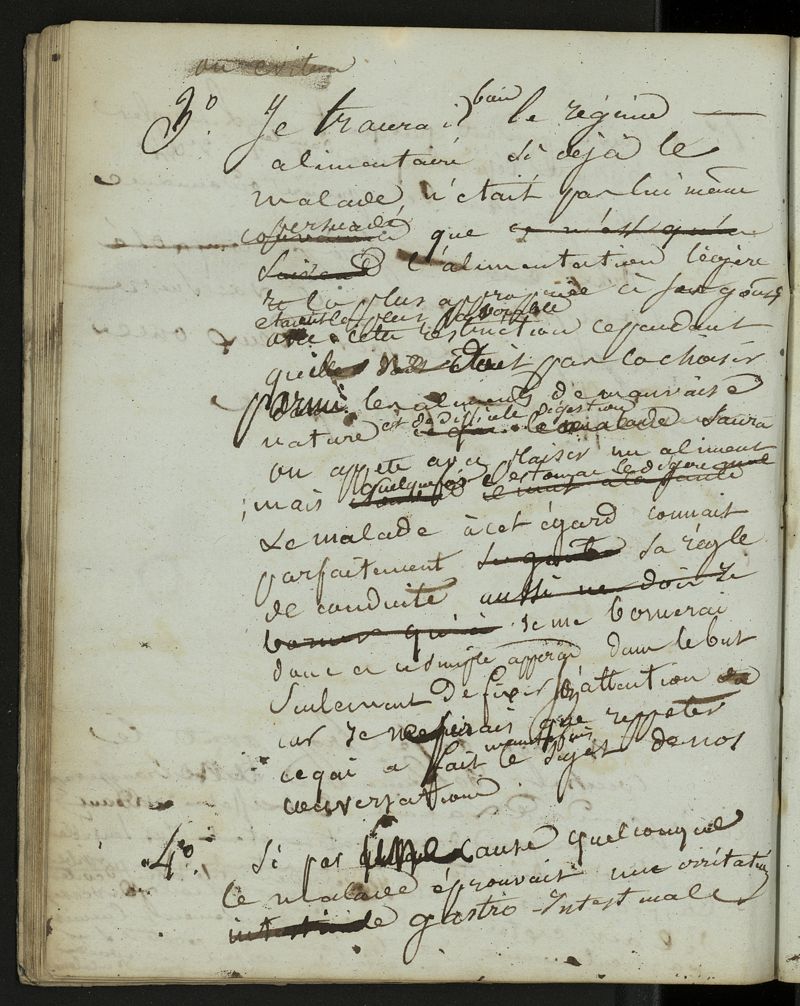 on evitera
3° Je tracerai bien le régime
alimentaire si déjà le
malade n'était par lui même
persuadé
convaincu que ce n'est qu'en
faisant l'alimentation légère
la plus appropriée à son goût
etait la plus favorable
avec cette restriction cependant
qu'il ne doit pas la choisir
parmi les aliments de mauvaise
nature et de difficile digestion le malade saura
on appete avec plaisir un aliment
mais quelquefois l'estomac le digere mal
Le malade à cet égard connait
parfaitement sa régle
de conduite aussi ne dois je
borner qu'à Je me bornerai
donc a ce simple apperçu dans le but
seulement de fixer son attention
car Je ne ferais que reppeter
maintes fois
ce qui a fait le sujet de nos
conversations.
4° Si par une cause quelconque
le malade éprouvait une irritation
intestinale gastro-Intestinale